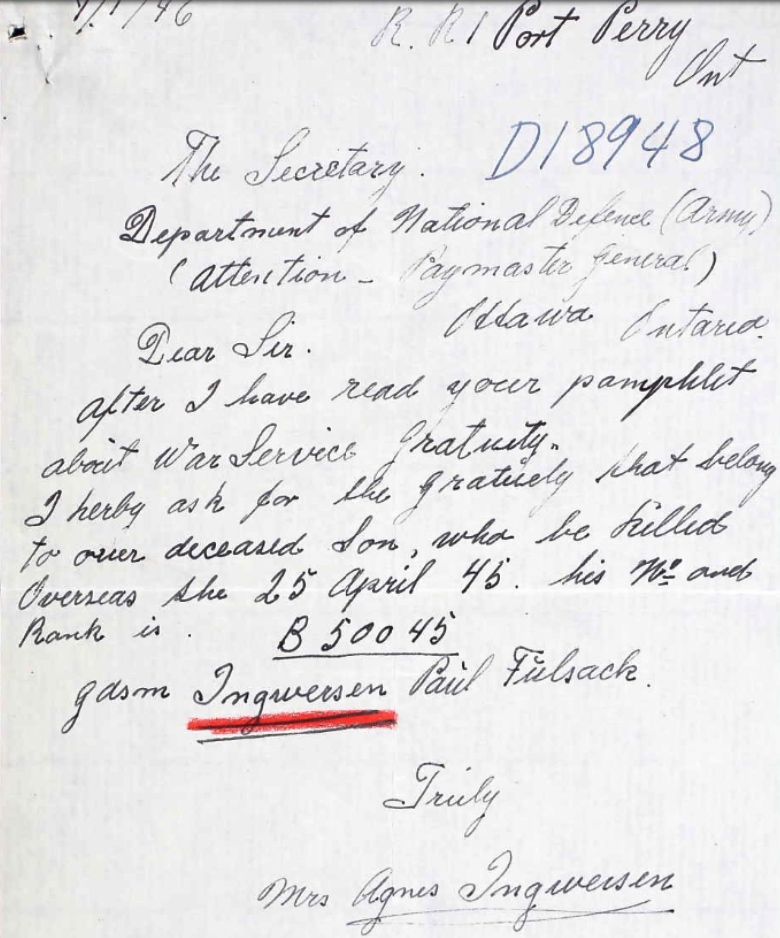 R. R 1 Port Perry
Ont
D18948
The Secretary.
Department of National Defence (Army)
(Attention - Paymaster General)
Ottawa Ontario.
Dear Sir.
After I have read your pamphlet
about War Service Gratuity.
I herby ask for the gratuety that belong
to ouer deceased Son, who be killed
Overseas the 25 April 45. his No and
Rank is.
B 50045
gdsm Ingwersen Paul Fülsack.
Truly
Mrs Agnes Ingwersen